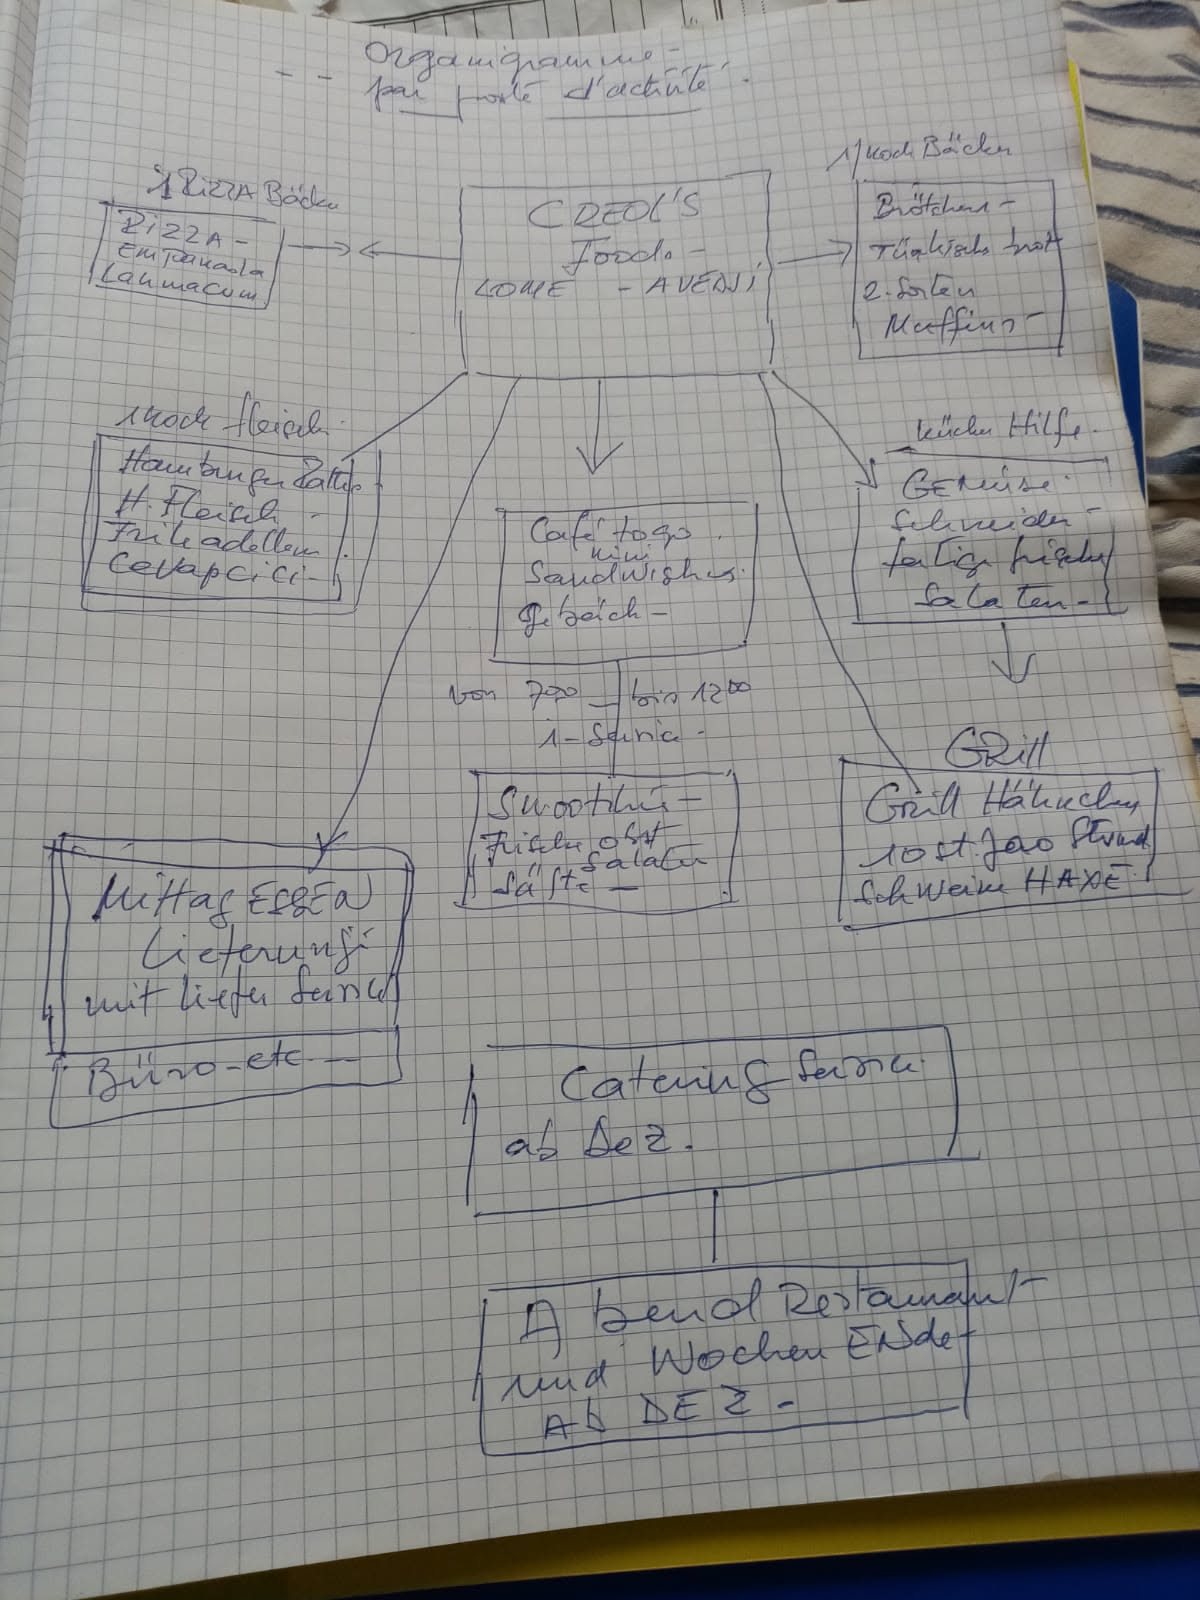 Organigramme -
par poste d'activité.
1 PIZZA Bäcker
PIZZA -
Empanada
Lahmacum
CREOL'S
Food -
LOME - AVENJI
1) Koch Bäcker
Brötchen -
Türkisch brot
2. Sorten
Muffins -
1 Koch fleisch.
Hamburger
H. Fleisch -
Frikadellen.
Cevapcici -
Café to go.
mini
Sandwishes.
Gebäck -
von 700 bis 1200
1 - Servic.
Küchen Hilfe.
GEMüse.
Schneiden -
fertige frische
Salaten -
Smoothies -
Frische obst
Salaten
Säfte -
Grill
Grill Hähnchen
10 st. Stund
Schweine HAXE.
Mittag ESSEN
Lieferung
mit Liefer Servic
Büro - etc -
Catering Servic.
ab Dez.
Abend Restaurant -
und Wochen ENde -
Ab DEZ -